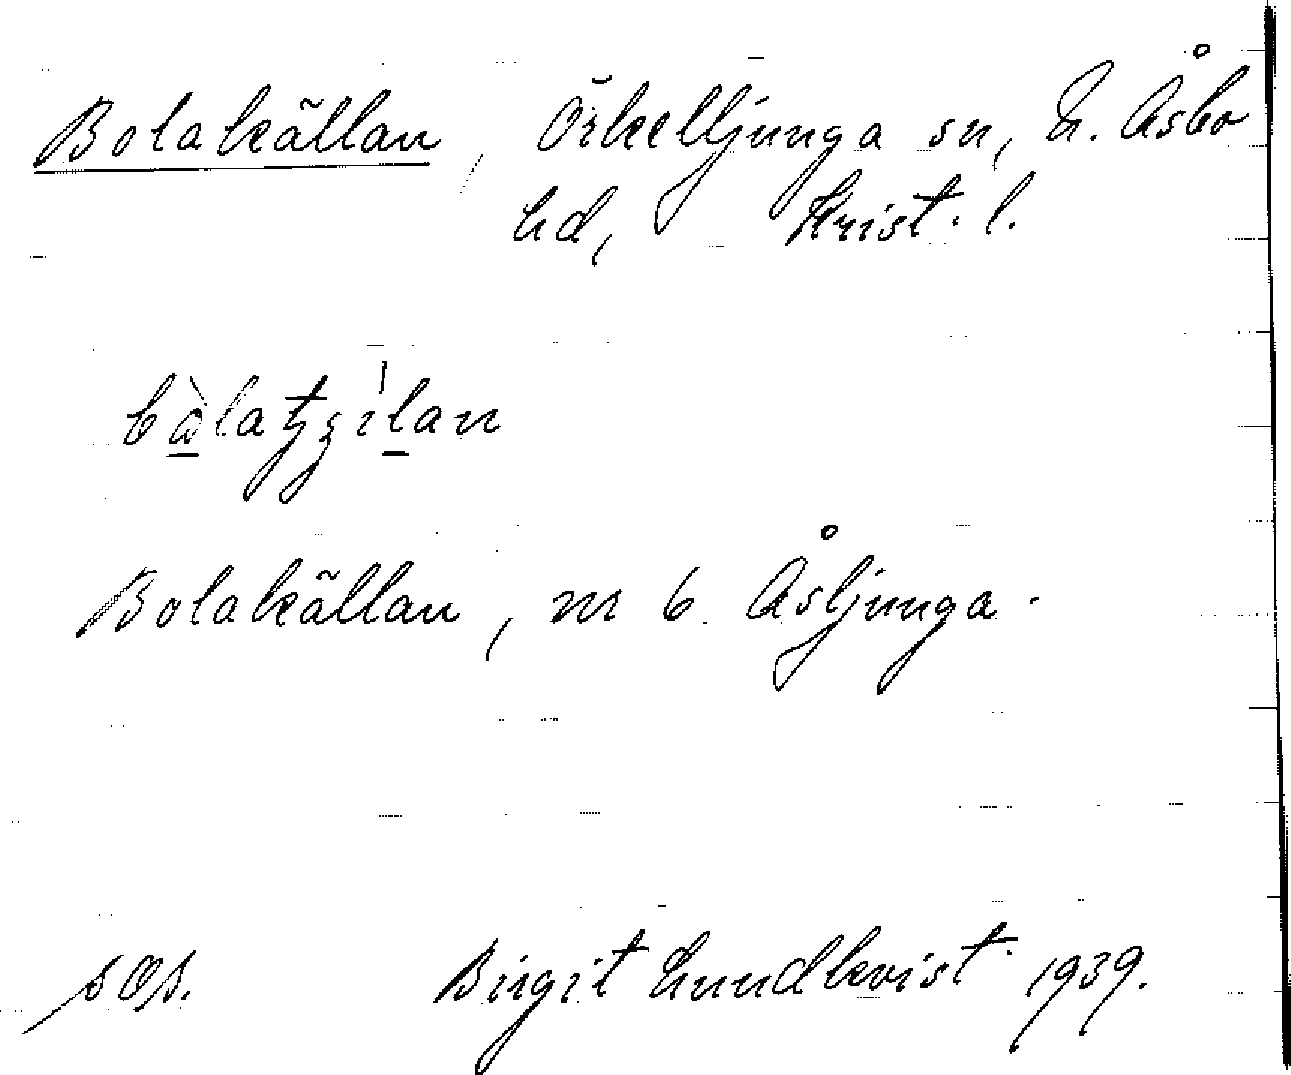 Bolakällan, Örkelljunga sn, N. Åsbo
hd, Krist. l.
Bolakällan, nr 6 Åsljunga.
Birgit Lundkvist 1939.